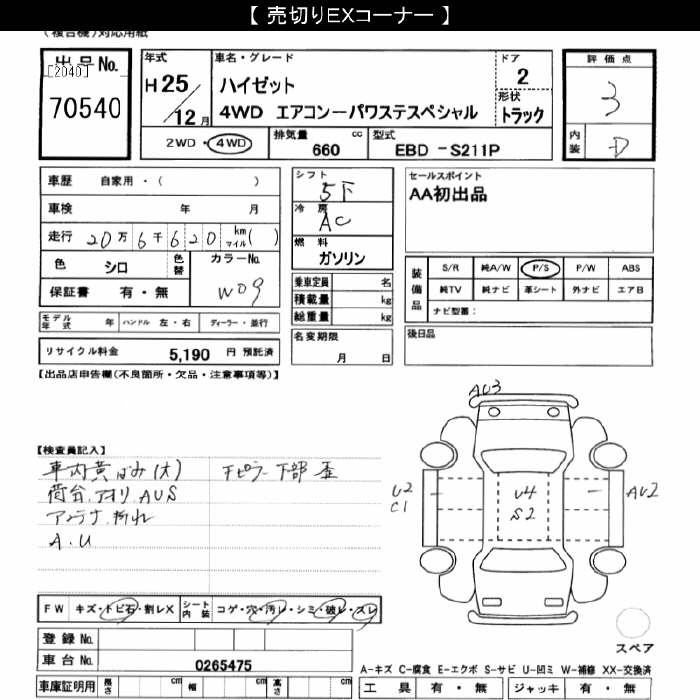 【 売切りEXコーナー 】
(複合機)対応用紙
出品No.
[2040]
70540
年式
H25/12月
車名・グレード
ハイゼット
4WD エアコンーパワステスペシャル
ドア
2
形状
トラック
2WD・4WD
排気量
660 cc
型式
EBD -S211P
評価点
3
内装
D
車歴 自家用・( )
車検 年 月
走行 20万6千620 km マイル( )
色 シロ
色替
カラーNo.
W09
保証書 有・無
モデル年式 年 ハンドル 左・右 ディーラー・並行
リサイクル料金 5,190 円 預託済
シフト
5下
冷房
AC
燃料
ガソリン
乗車定員 名
積載量 kg
総重量 kg
名変期限
月 日
セールスポイント
AA初出品
装備品
S/R 純A/W P/S P/W ABS
純TV 純ナビ 革シート 外ナビ エアB
ナビ型番:
後日品
【出品店申告欄(不良箇所・欠品・注意事項等)】
【検査員記入】
車内黄ばみ(大) 下ピラー下部歪
荷台.アオリ AUS
アンテナ.折れ
A.U
AU3
U2
C1
U4
S2
AU2
FW キズ・トビ石・割レX
シート内装 コゲ・穴・汚レ・シミ・破レ・スレ
登録No.
車台No. 0265475
スペア
車庫証明用 長さ cm 幅 cm 高さ cm
A-キズ C-腐食 E-エクボ S-サビ U-凹ミ W-補修 XX-交換済
工具 有・無 ジャッキ 有・無